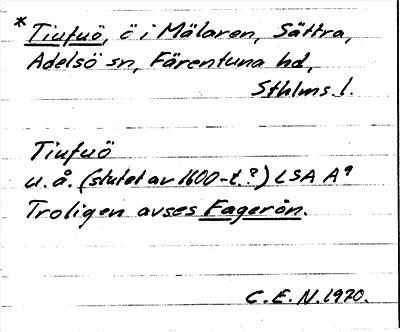 * Tiufuö, ö i Mälaren, Sättra,
Adelsö sn, Färentuna hd,
Sthlms l.
Tiufuö
u.å. (slutet av 1600-t.?) LSA A⁹
Troligen avses Fagerön.
C.E.N. 1970.